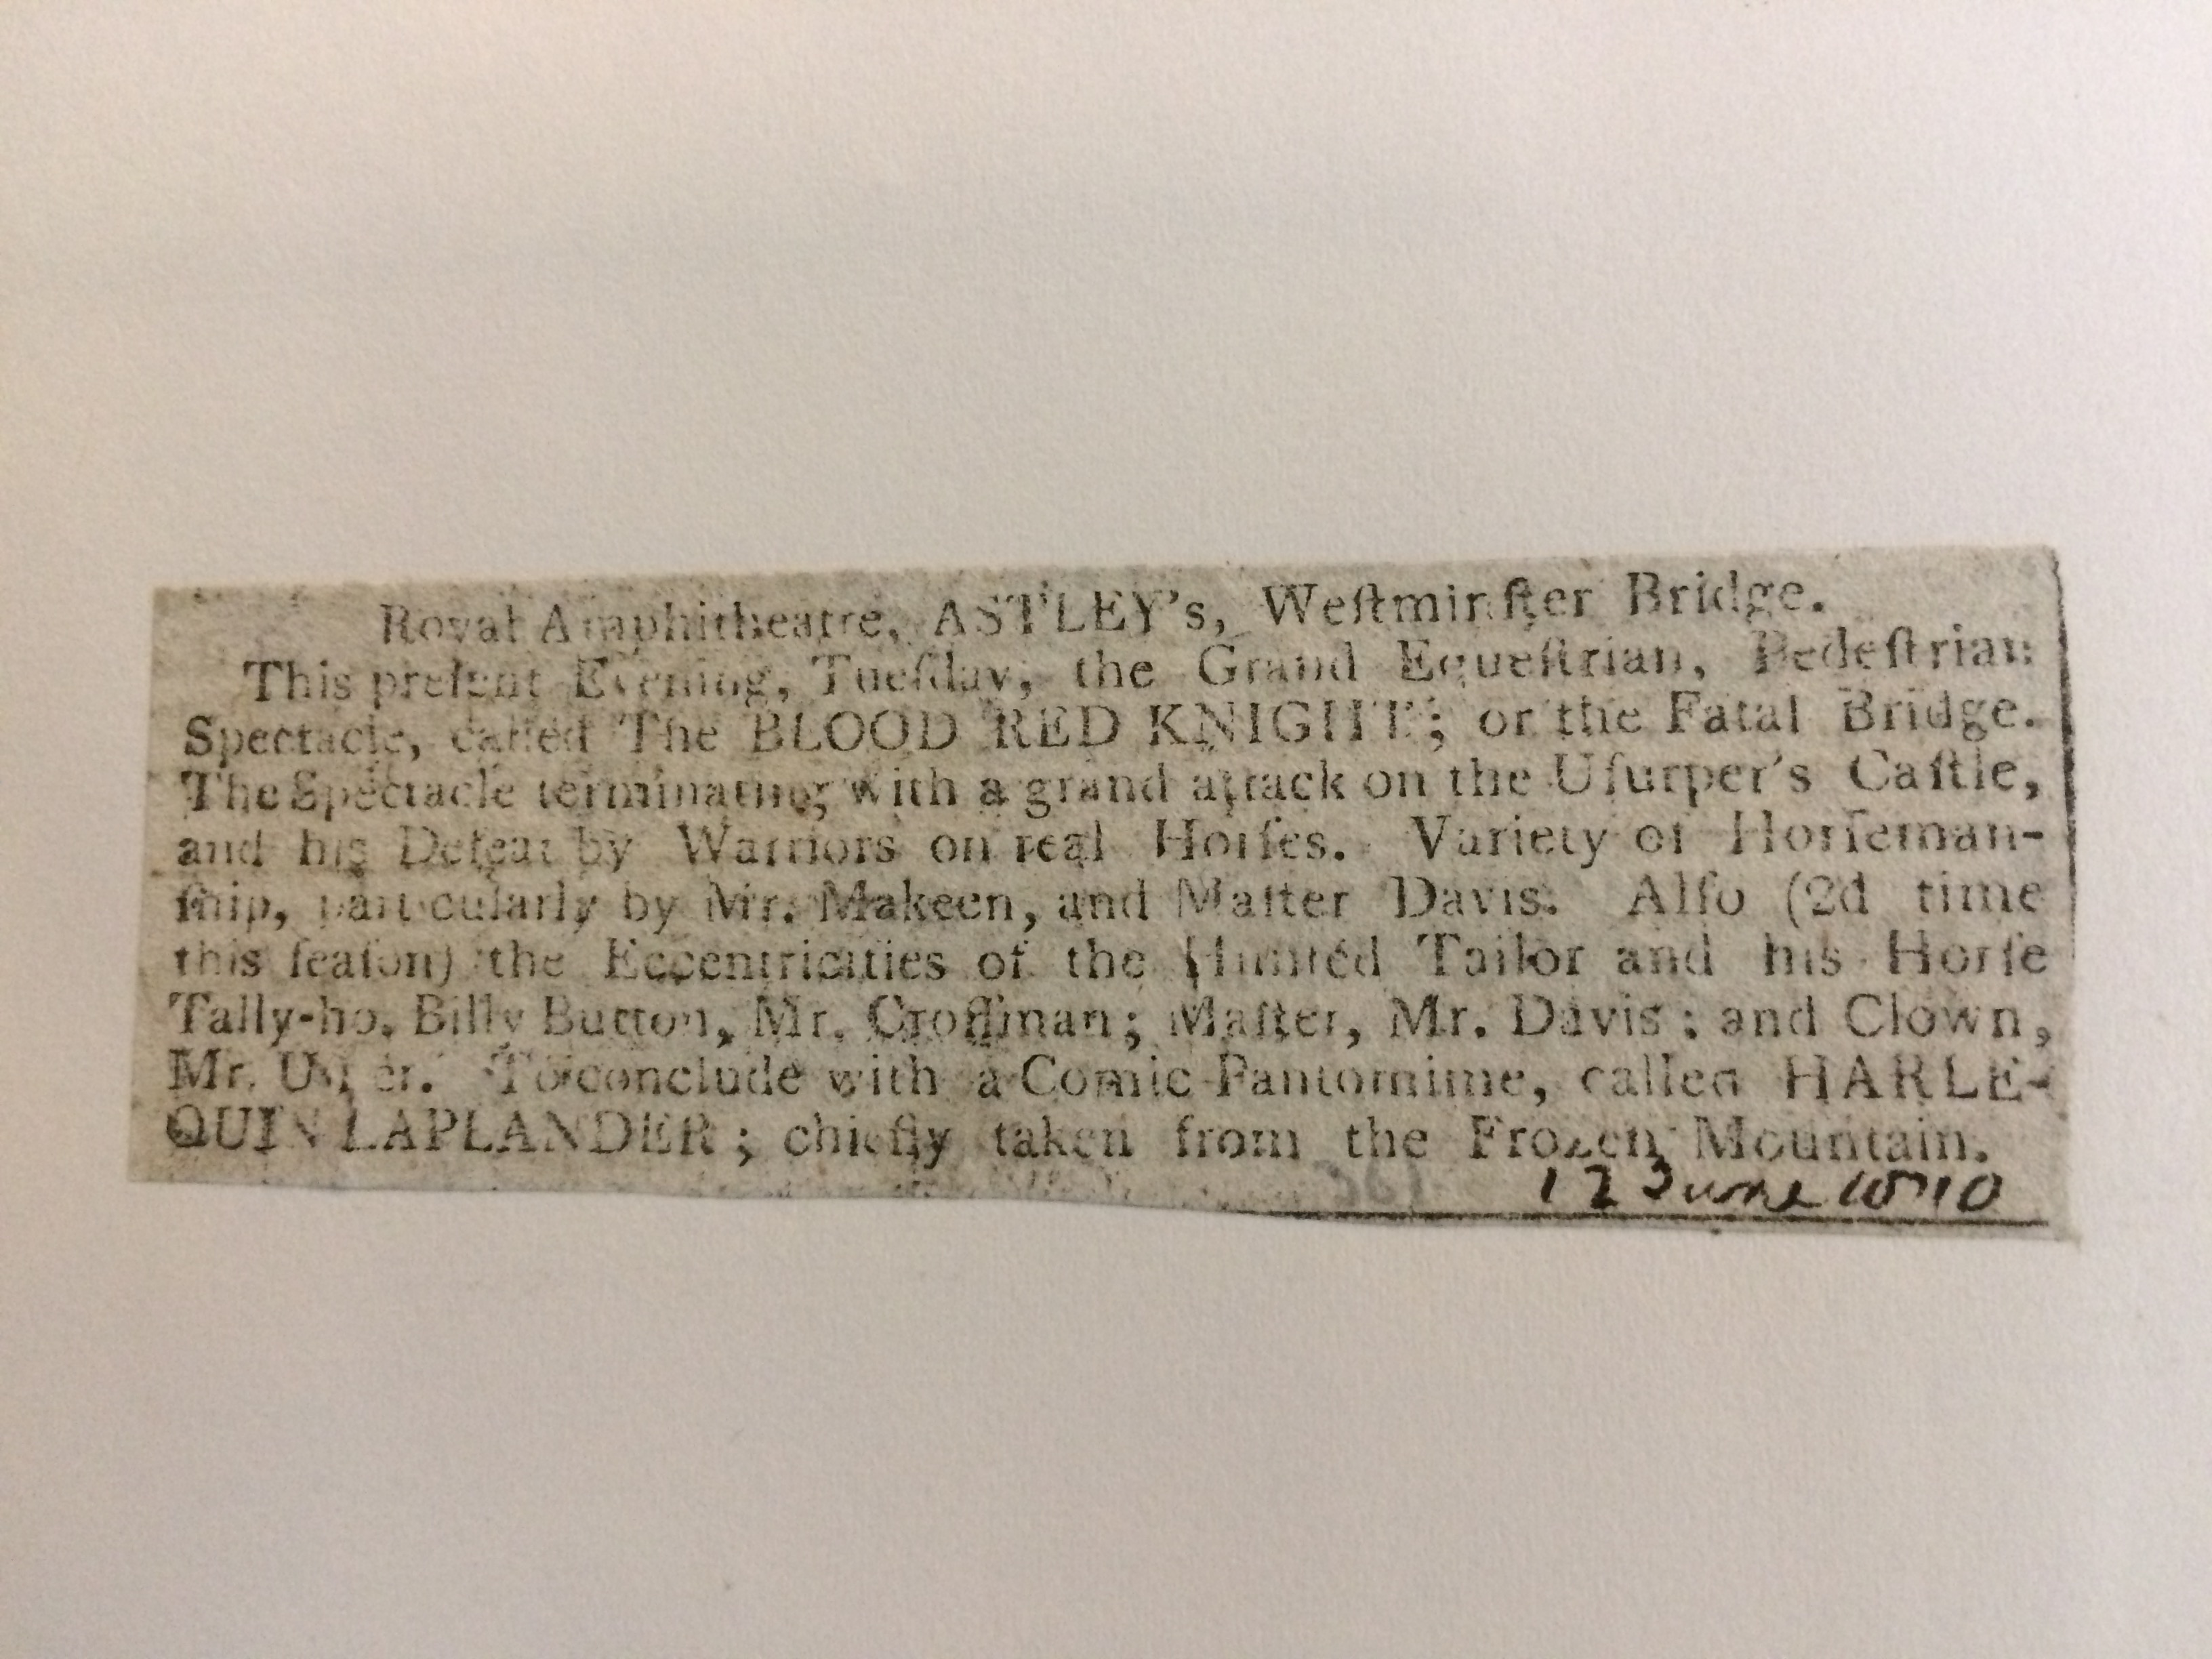 Royal Amphitheatre, ASTLEY's, Weſtminſter Bridge.
This preſent Evening, Tueſday, the Grand Equeſtrian, Pedeſtrian
Spectacle, called The BLOOD RED KNIGHT; or the Fatal Bridge.
The Spectacle terminating with a grand attack on the Uſurper's Caſtle,
and his Defeat by Warriors on real Horſes. Variety of Horſeman-
ſhip, particularly by Mr. Makeen, and Maſter Davis. Alſo (2d time
this ſeaſon) the Eccentricities of the Hunted Tailor and his Horſe
Tally-ho. Billy Button, Mr. Croſſman; Maſter, Mr. Davis; and Clown,
Mr. To conclude with a Comic Pantomime, called HARLE-
QUIN LAPLANDER; chiefly taken from the Frozen Mountain.
12 June 1810